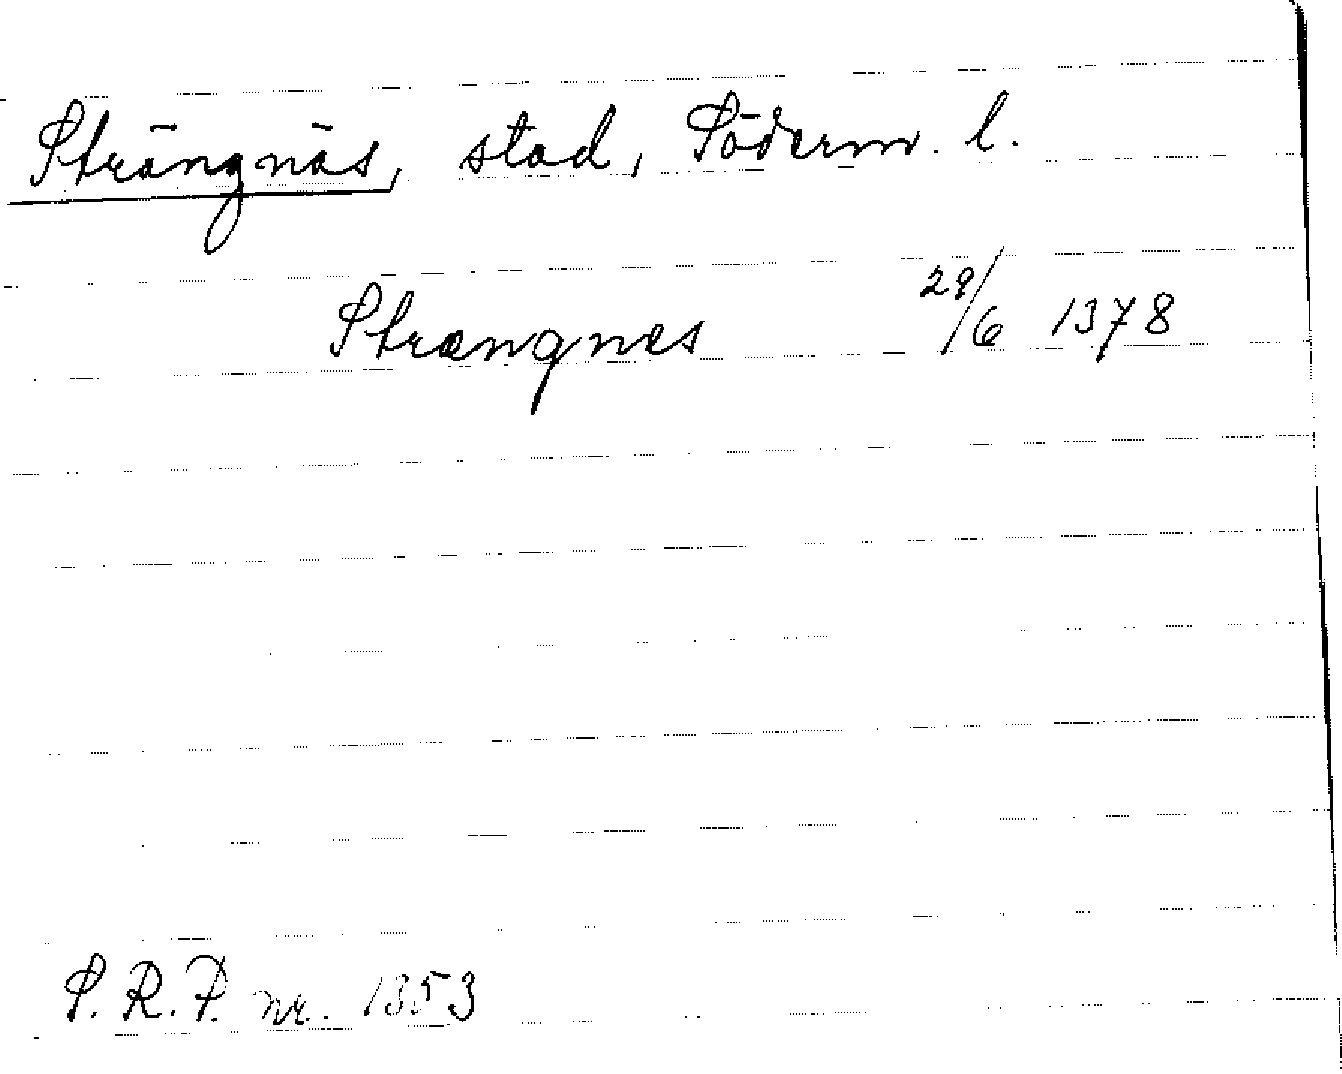 Strängnäs, stad, Söderm. l.
Strængnæs 29/6 1378
S. R. P. nr. 1353